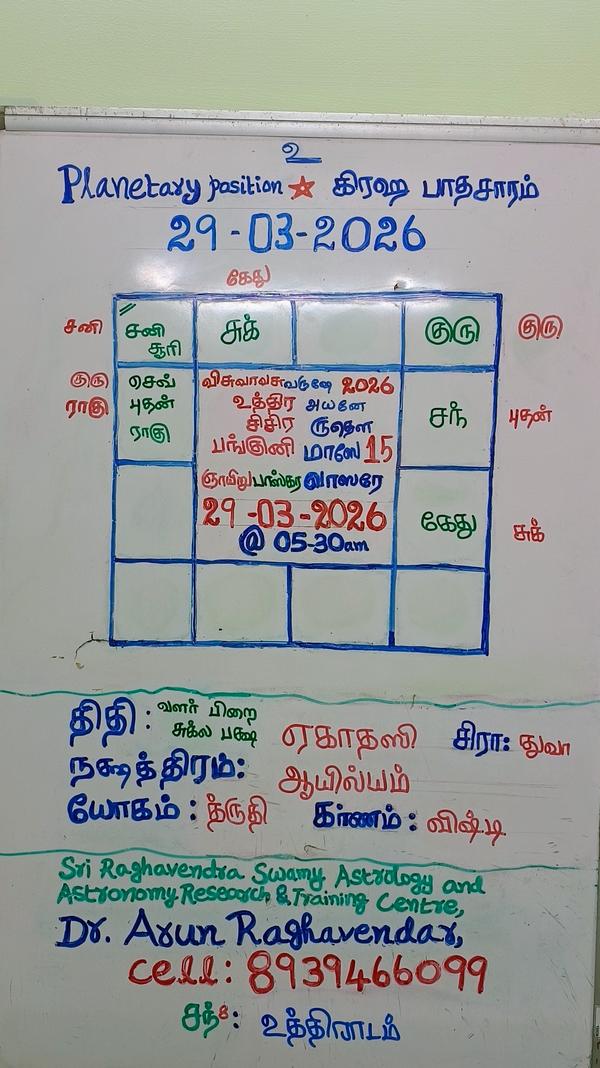 உ
Planetary position ☆ கிரஹ பாதசாரம்
29-03-2026
கேது
சனி
சனி
சூரி
சுக்
குரு
குரு
குரு
ராகு
செவ்
புதன்
ராகு
விசுவாவசுவருஷே 2026
உத்திர அயனே
சிசிர ருதௌ
பங்குனி மாஸே 15
ஞாயிறு பாஸ்கர வாஸரே
29-03-2026
@ 05-30am
சந்
புதன்
கேது
சுக்
திதி : வளர் பிறை
சுக்ல பக்ஷ
ஏகாதஸி சிரா: துவா
நக்ஷத்திரம்: ஆயில்யம்
யோகம் : த்ருதி கர்ணம் : விஷ்டி
Sri Raghavendra Swamy Astrology and
Astronomy Research & Training Centre,
Dr. Arun Raghavendar,
cell: 8939466099